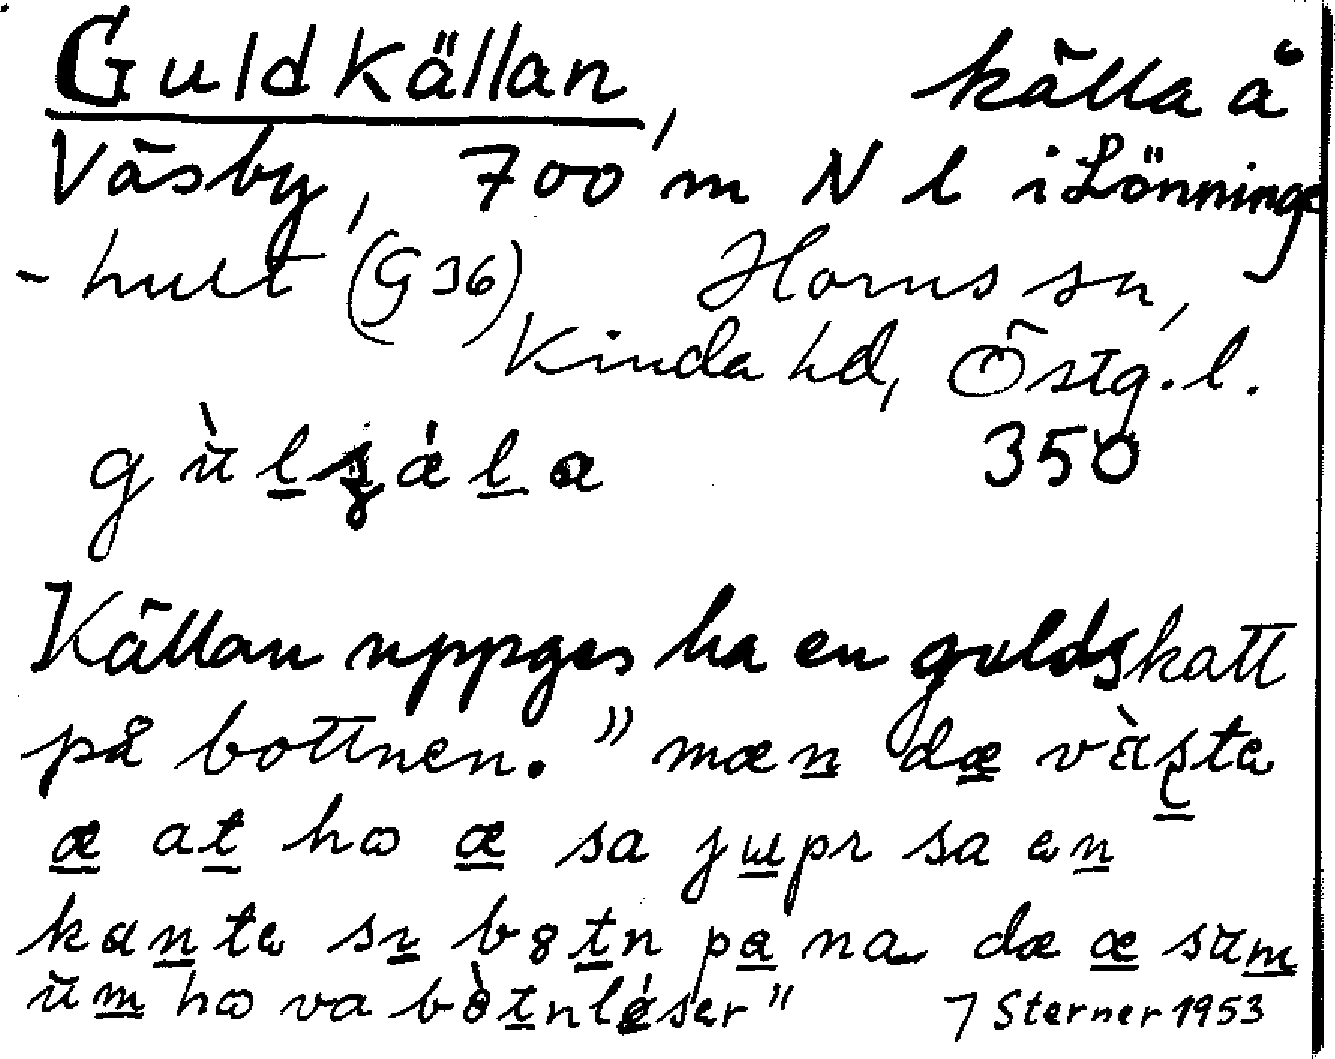 Guldkällan, källa å
Väsby, 700 m N l i Lönninge
-hult (G 36) Horns sn,
Kinda hd, Östg. l.
350
Källan uppges ha en guldskatt
på bottnen. "mæn dæ vàṣta
æ at ho æ sa jupr sa en
kante si botn pa na dæ æ sum
um ho va bòtnlǿser" J Sterner 1953